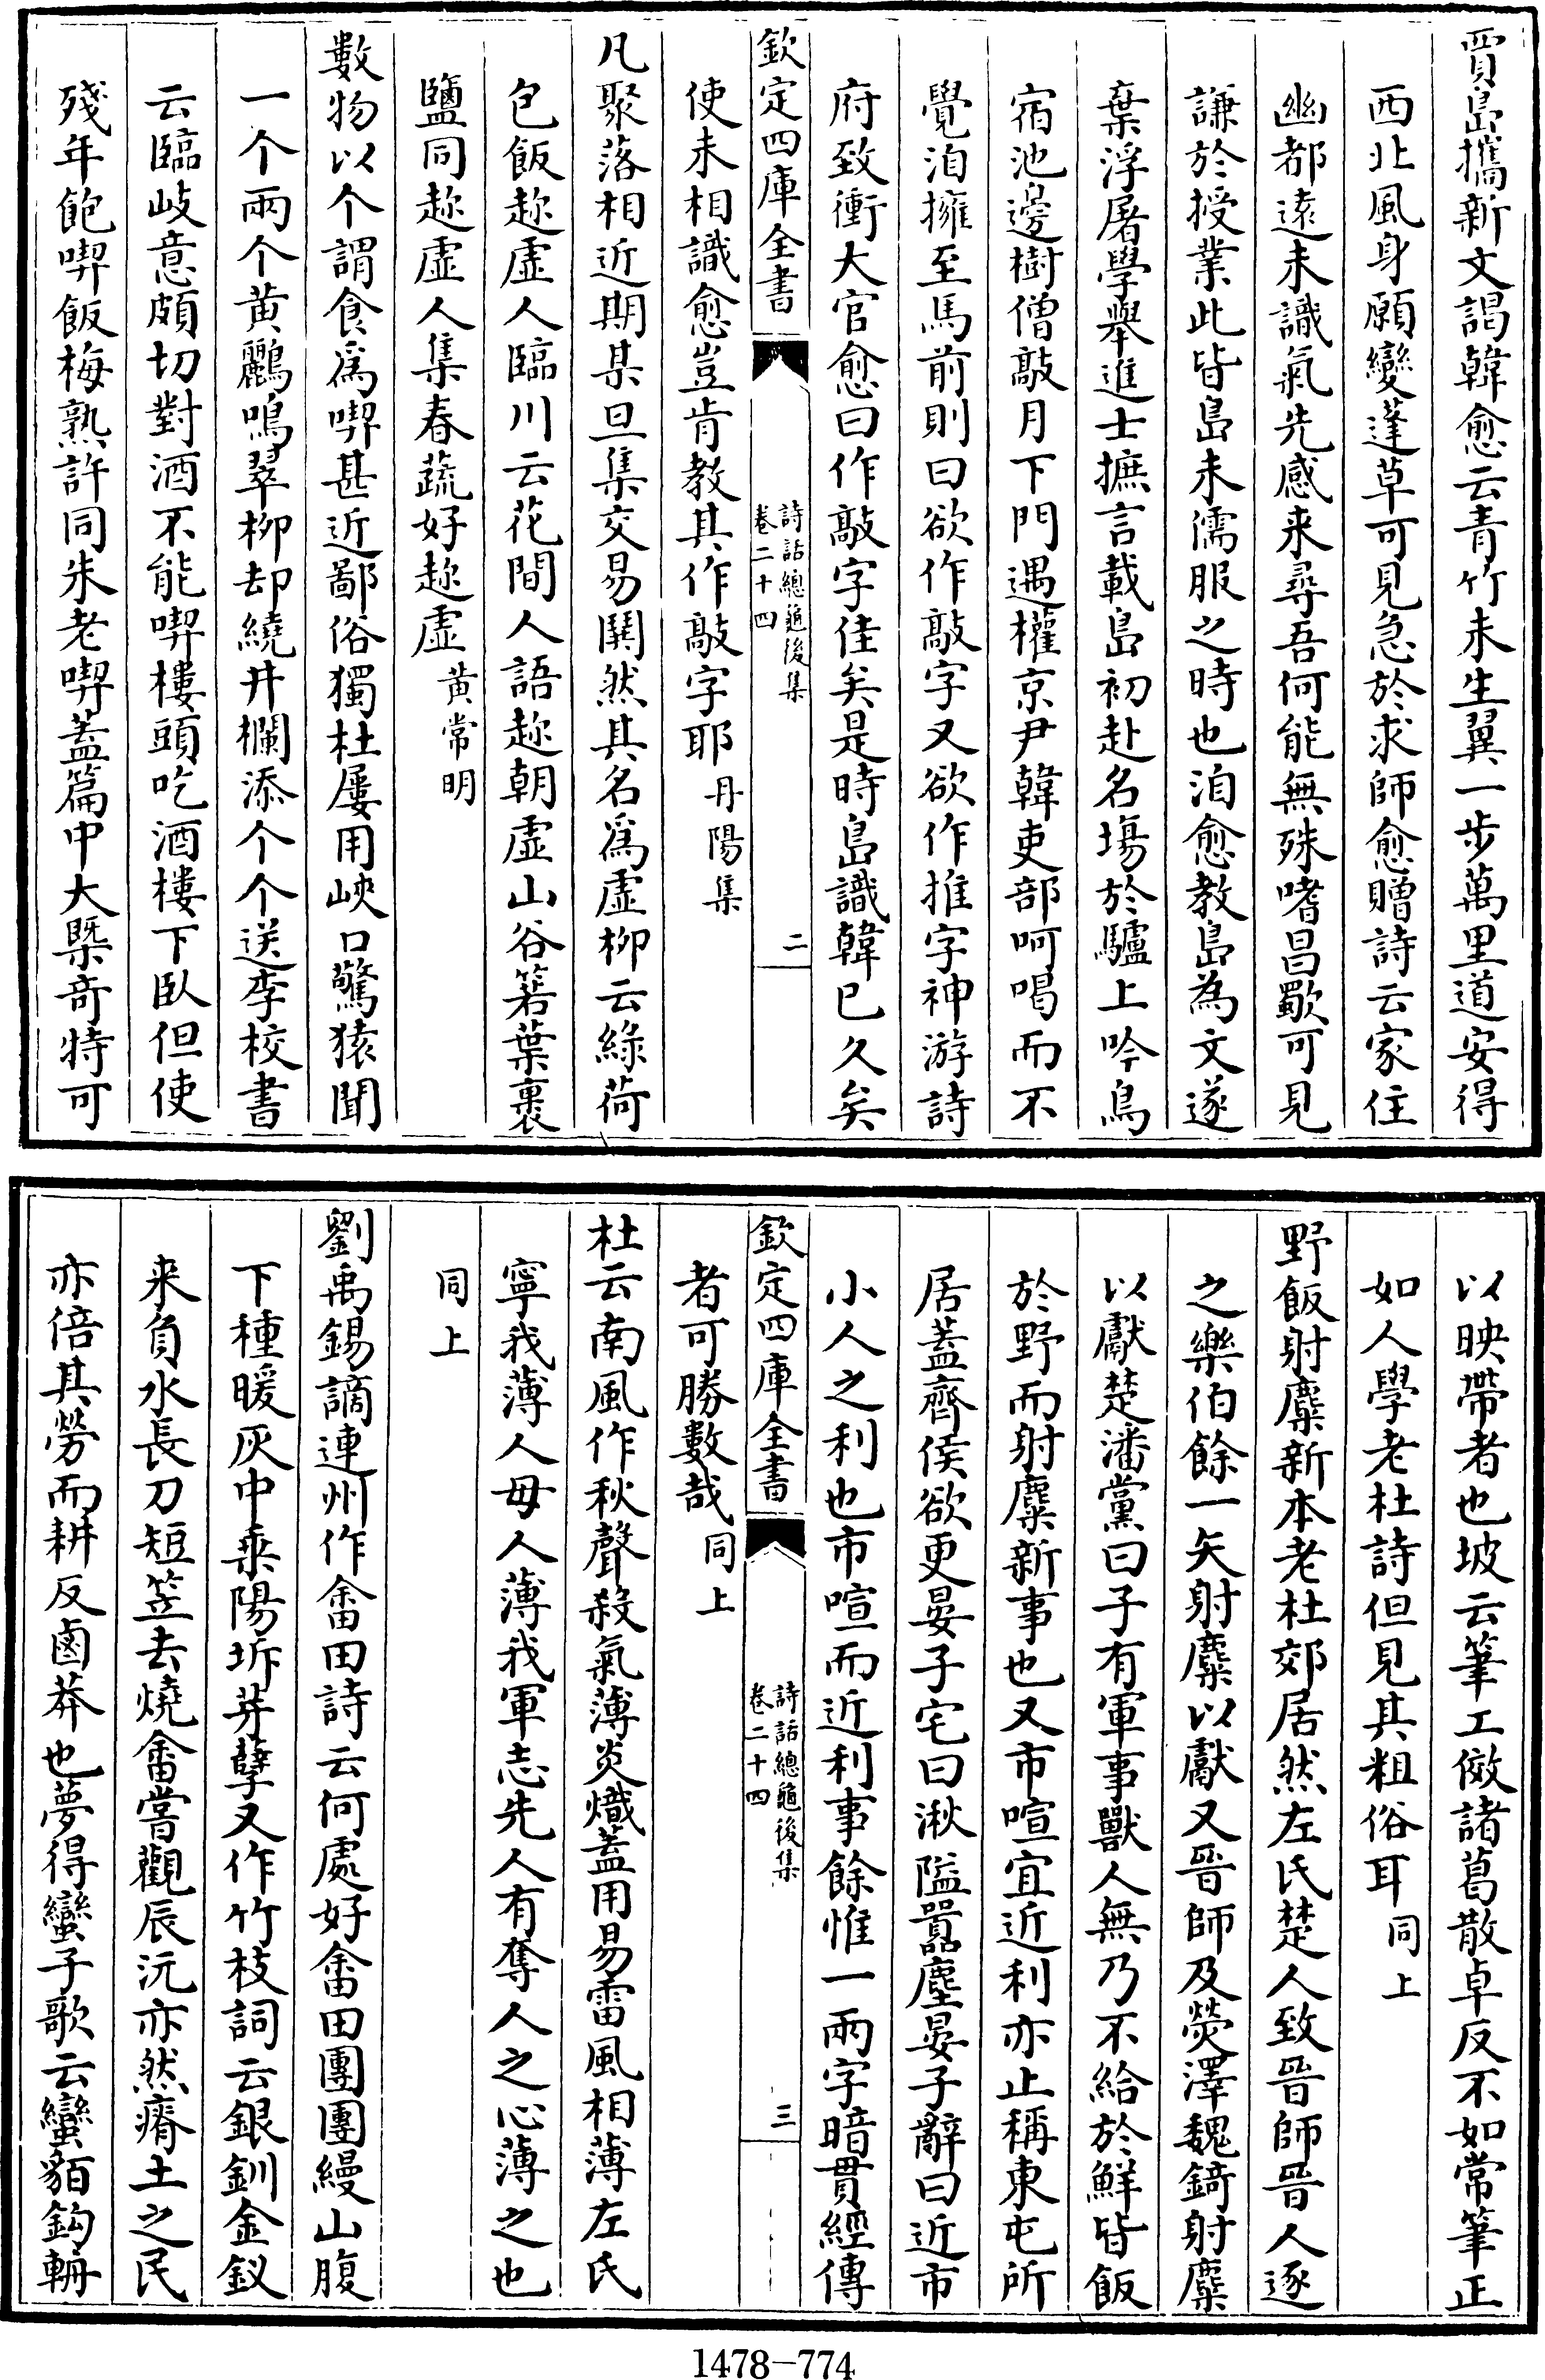 賈島攜新文謁韓愈云青竹未生翼一步萬里道安得
西北風身願變蓬草可見急於求師愈贈詩云家住
幽都遠未識氣先感来尋吾何能無殊嗜昌歜可見
謙於授業此皆島未儒服之時也洎愈教島為文遂
棄浮屠學舉進士摭言載島初赴名場於驢上吟鳥
宿池邊樹僧敲月下門遇權京尹韓吏部呵喝而不
覺洎擁至馬前則曰欲作敲字又欲作推字神游詩
府致衝大官愈曰作敲字佳矣是時島識韓已久矣
欽定四庫全書
詩話總龜後集
卷二十四
二
使未相識愈豈肯教其作敲字耶丹陽集
凡聚落相近期某旦集交易鬨然其名爲虛柳云綠荷
包飯趂虛人臨川云花間人語趂朝虛山谷箬葉裹
鹽同趂虛人集春蔬好趂虛黄常明
數物以个謂食爲喫甚近鄙俗獨杜屢用峽口驚猿聞
一个兩个黄鸝鳴翠柳却繞井欄添个个送李校書
云臨岐意頗切對酒不能喫樓頭吃酒樓下臥但使
殘年飽喫飯梅熟許同朱老喫蓋篇中大槩奇特可
以映帶者也坡云筆工傚諸葛散卓反不如常筆正
如人學老杜詩但見其粗俗耳同上
野飯射麋新本老杜郊居然左氏楚人致晉師晉人逐
之樂伯餘一矢射麋以獻又晉師及熒澤魏錡射麋
以獻楚潘黨曰子有軍事獸人無乃不給於鮮皆飯
於野而射麋新事也又市喧宜近利亦止稱東屯所
居蓋齊侯欲更晏子宅曰湫隘嚣塵晏子辭曰近市
小人之利也市喧而近利事餘惟一兩字暗貫經傳
欽定四庫全書
詩話總龜後集
卷二十四
三
者可勝數哉同上
杜云南風作秋聲殺氣薄炎熾蓋用易雷風相薄左氏
寧我薄人毋人薄我軍志先人有奪人之心薄之也
同上
劉禹錫謫連州作畬田詩云何處好畬田團團縵山腹
下種暖灰中乘陽坼芽孽又作竹枝詞云銀釧金釵
来負水長刀短笠去燒畬嘗觀辰沅亦然瘠土之民
亦倍其勞而耕反鹵莽也夢得蠻子歌云蠻貊鈎輈
1478-774